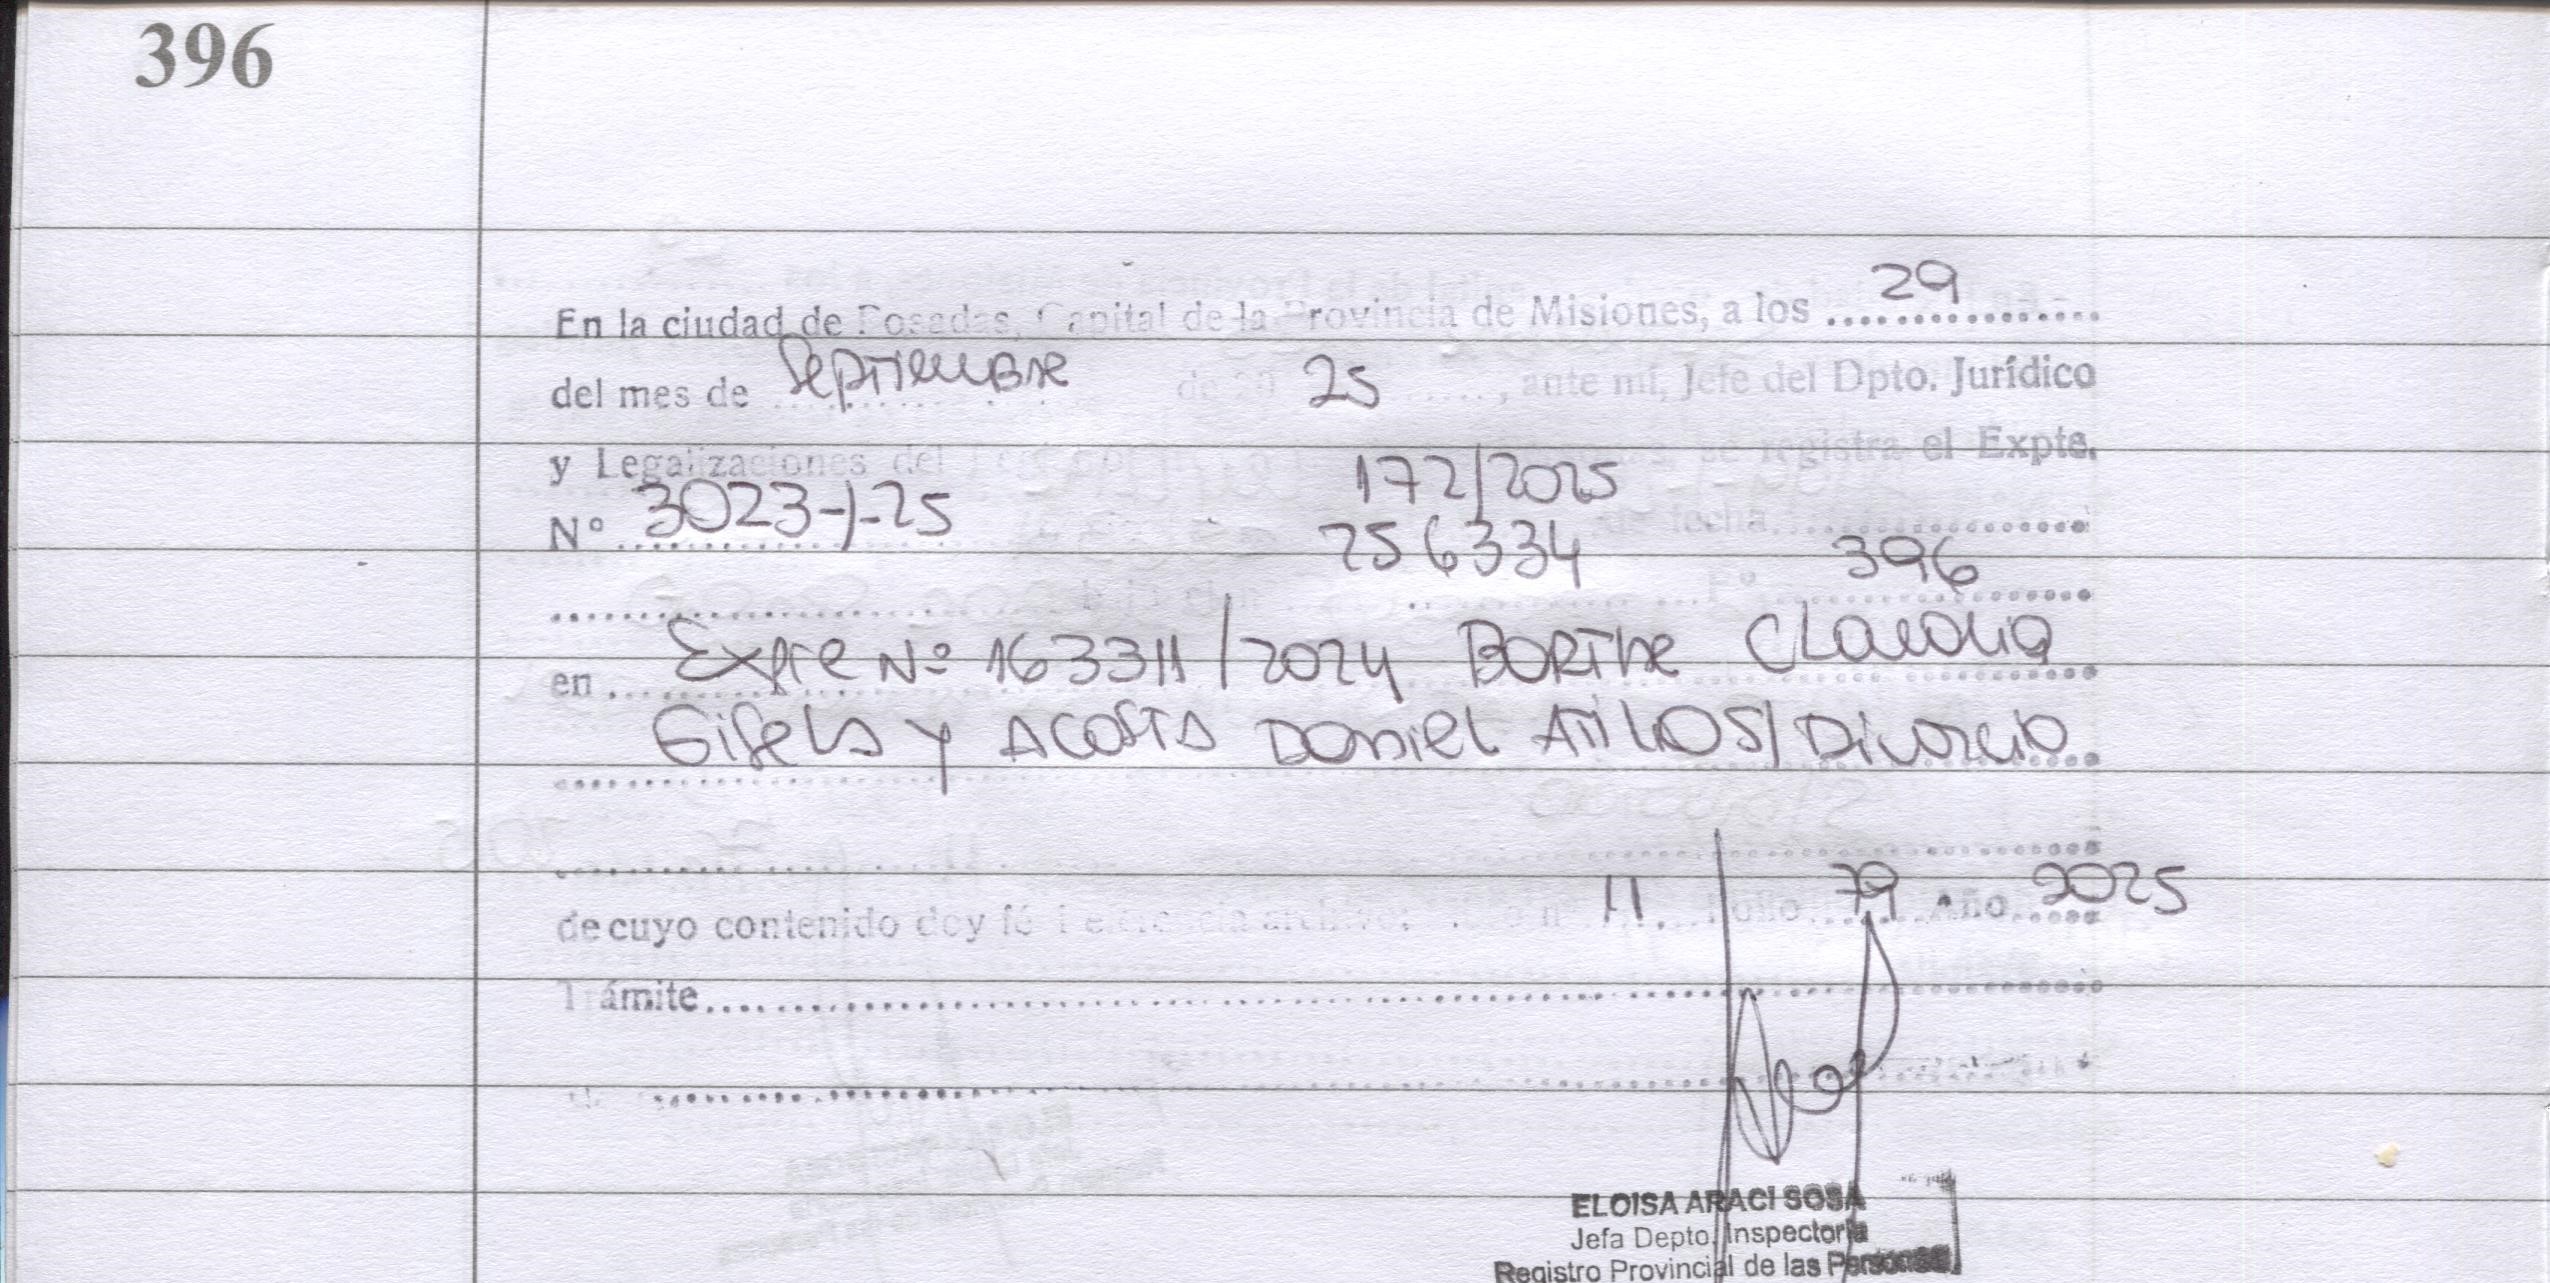 396
En la ciudad de Posadas, Capital de la Provincia de Misiones, a los 29
del mes de Septiembre de 20 25, ante mí, Jefe del Dpto. Jurídico
y Legalizaciones del se registra el Expte.
Nº 3023-J-25 172/2025 de fecha
256334 Fº 396
en Expte Nº 163311/2024 BORTHE CLAUDIA
Gisela y ACOSTA DANIEL ATILIO S/ Divorcio
de cuyo contenido doy fé Referencia archivo: 11 Folio 79 Año 2025
Trámite
ELOISA ARACI SOSA
Jefa Depto. Inspectoria
Registro Provincial de las Personas